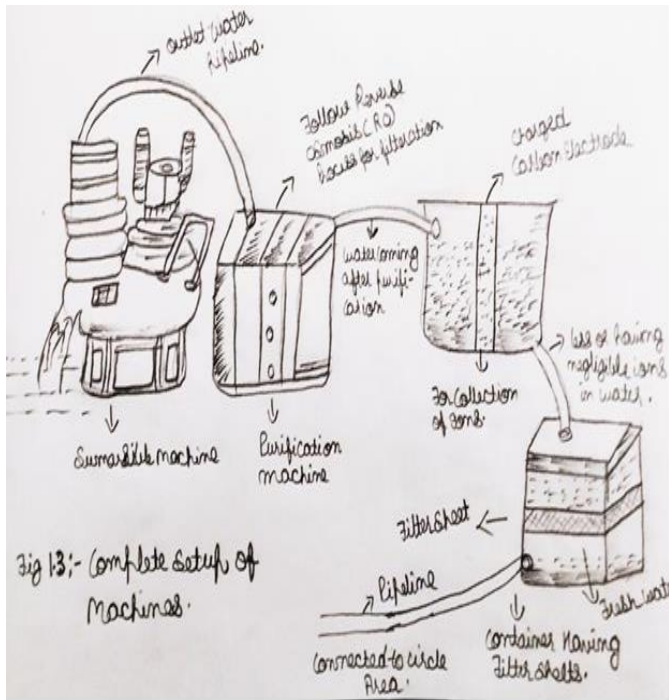 outlet water
Pipeline.
Follow Reverse
Osmosis (RO)
Process for filteration
charged
Carbon Electrode
water coming
after purifi-
cation
less or having
negligible ions
in water.
For Collection
of Ions.
Sumarsible machine
Purification
machine
Filter Sheet
Fig 1.3:- Complete Setup of
Machines.
Pipeline
Connected to circle
Area.
Container Having
Filter Shelts.
Fresh wate